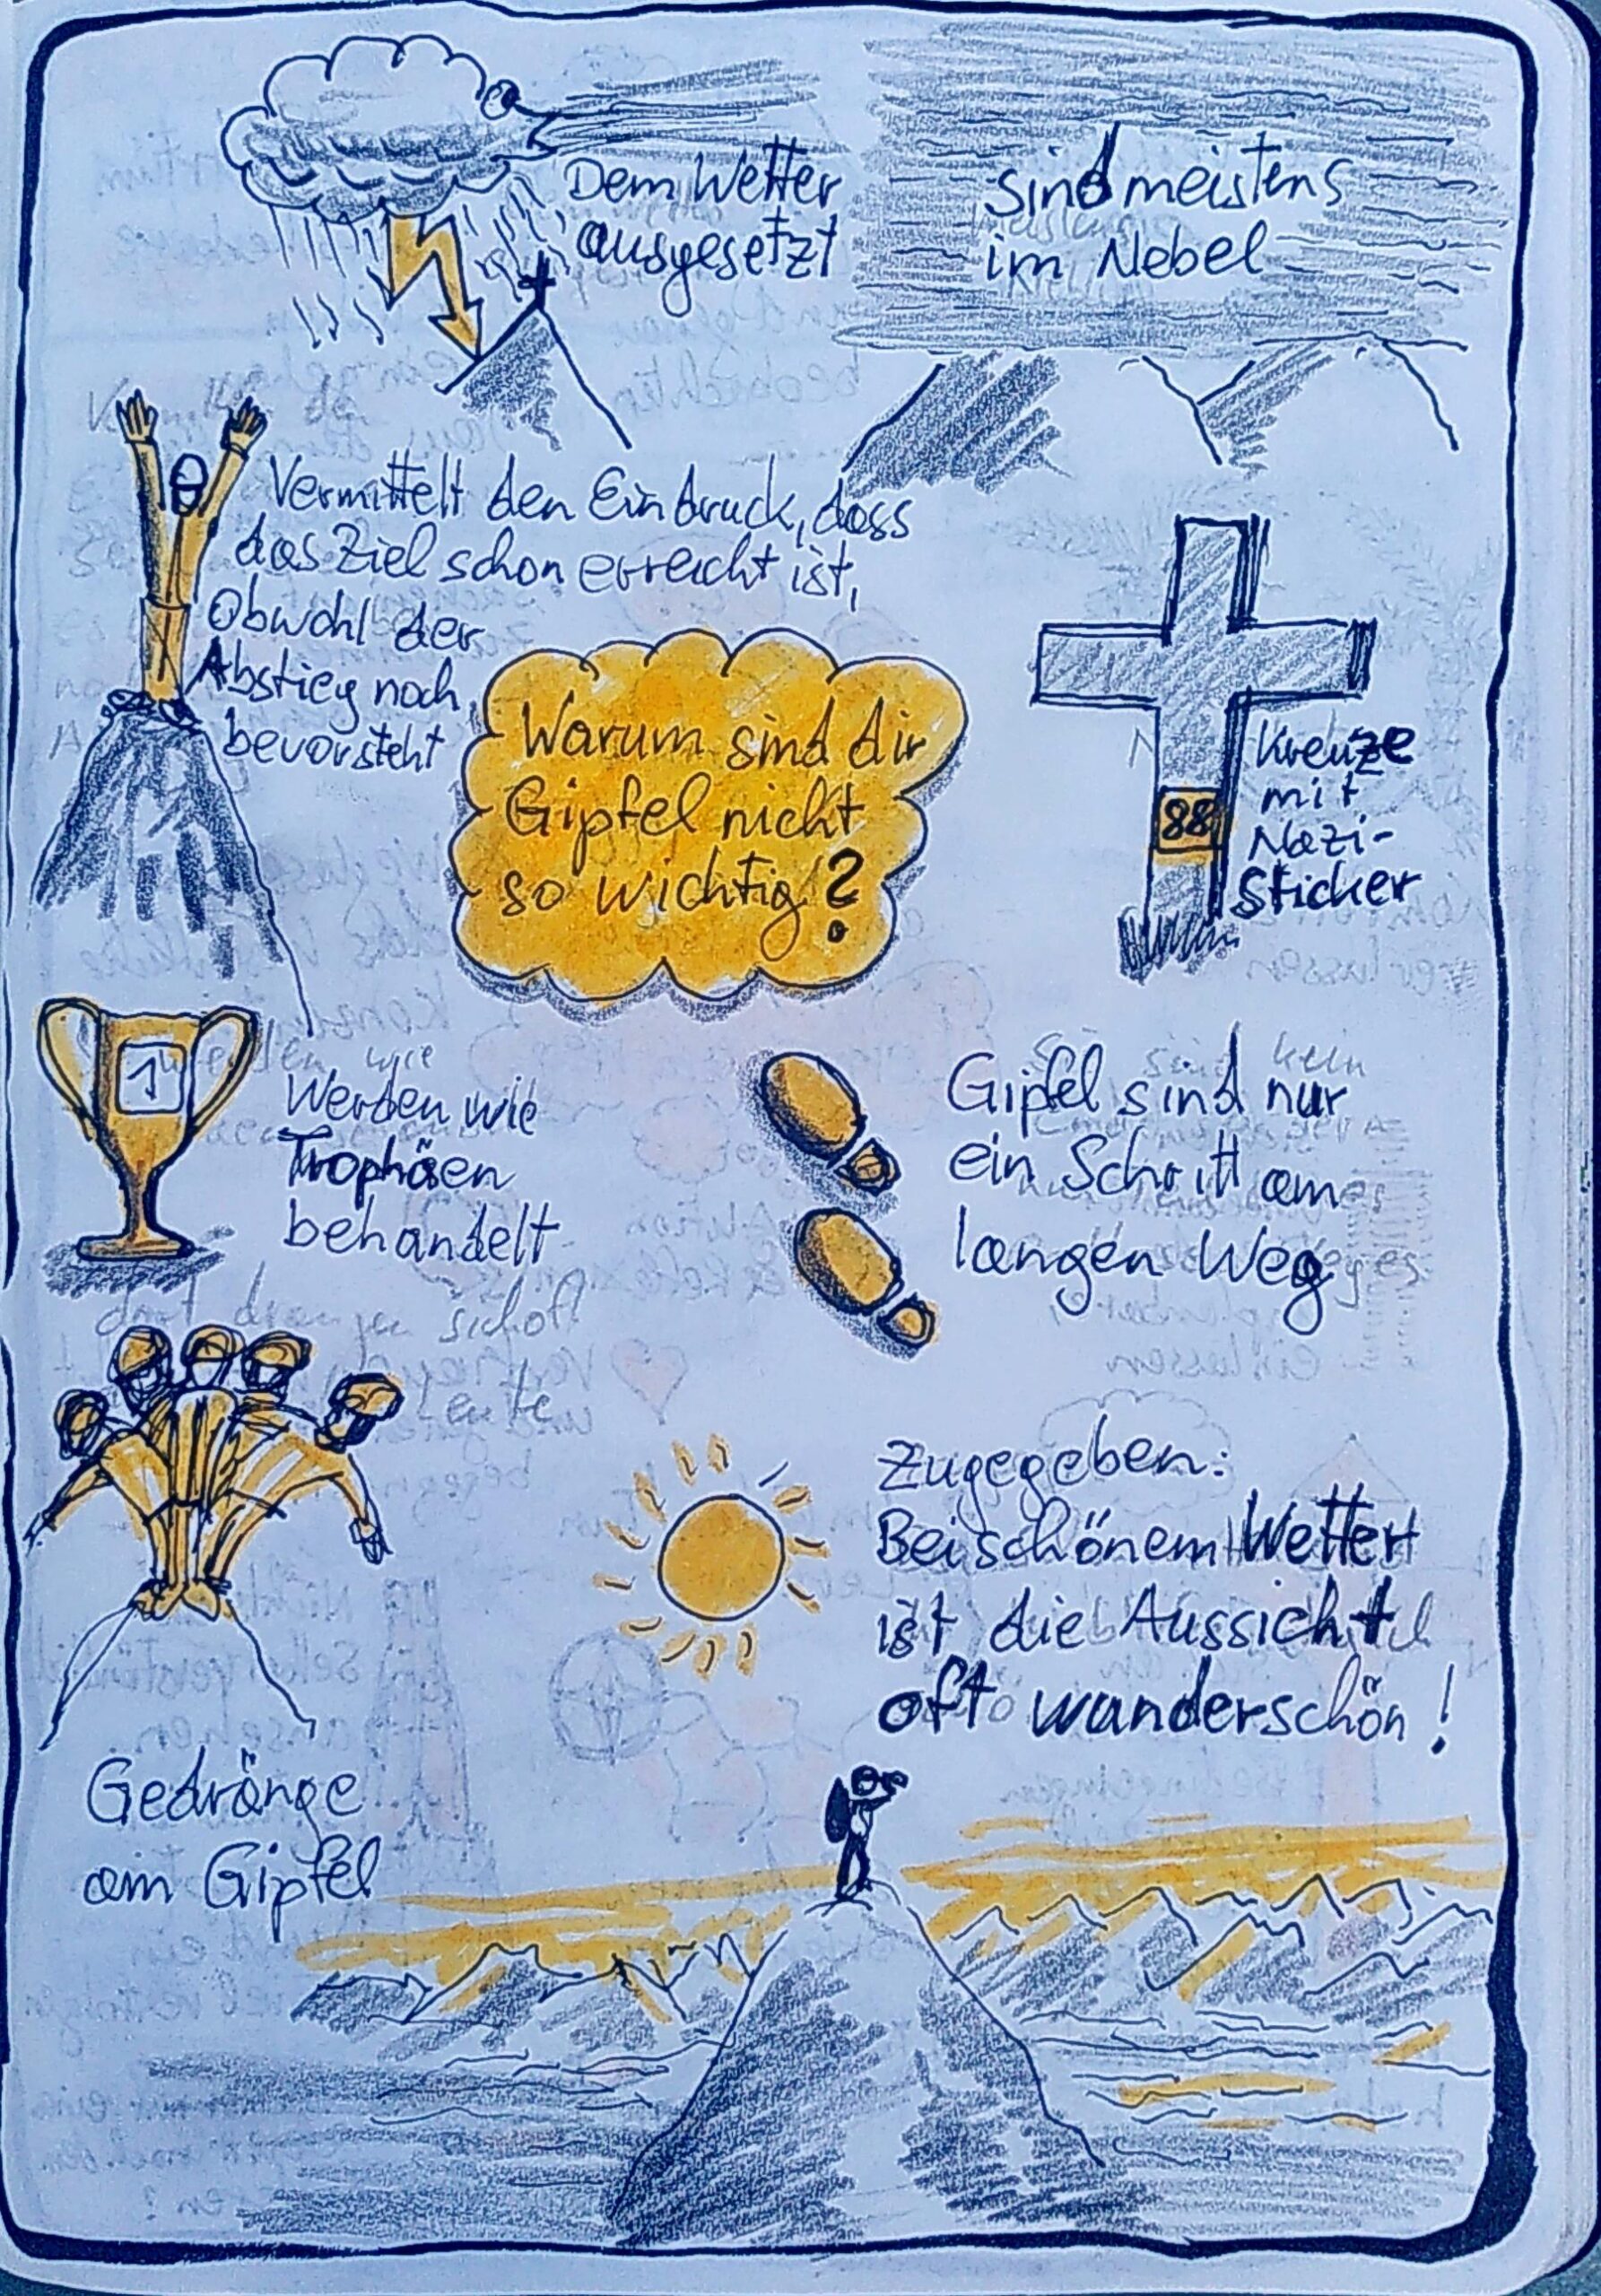 Dem Wetter
ausgesetzt
sind meistens
im Nebel
Vermittelt den Eindruck, dass
das Ziel schon erreicht ist,
Obwohl der
Abstieg noch
bevorsteht
Warum sind dir
Gipfel nicht
so wichtig?
Kreuze
mit
Nazi-
Sticker
88
1
Werden wie
Trophäen
behandelt
Gipfel sind nur
ein Schritt am
langen Weg
Gedränge
am Gipfel
Zugegeben:
Bei schönem Wetter
ist die Aussicht
oft wunderschön!